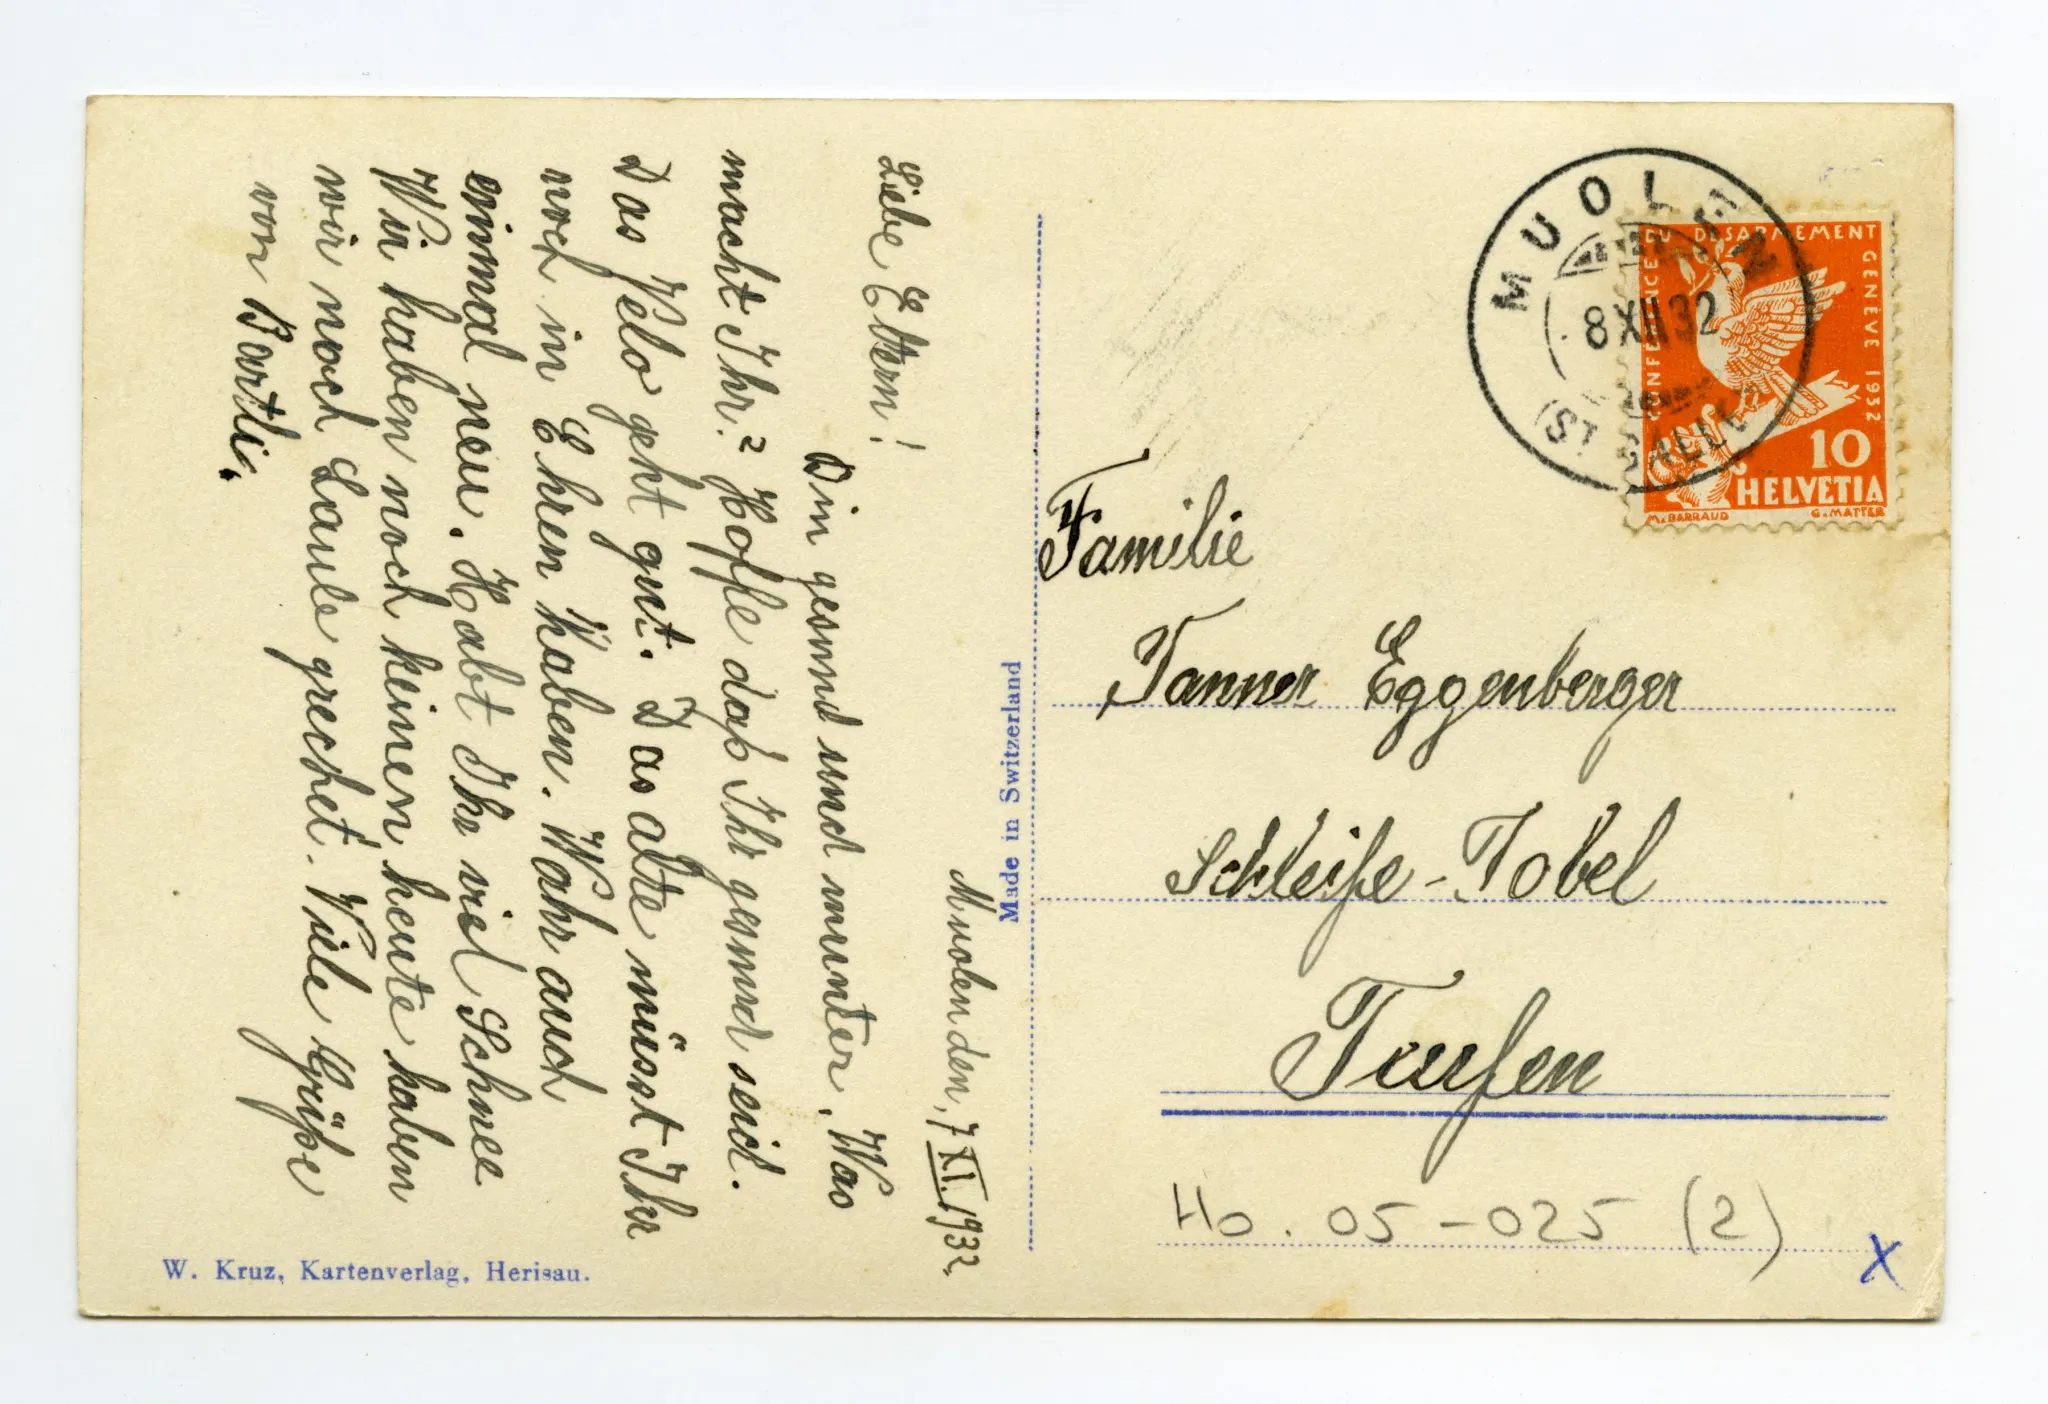 Muolen den, 7 XI. 1932.
Liebe Eltern!
Bin gesund und munter. Was
macht Ihr? Hoffe daß Ihr gesund seid.
Das Velo geht gut. Das alte müsst Ihr
noch in Ehren haben. Wahr auch
einmal neu. Habt Ihr viel Schnee
Wir haben noch keinen, heute haben
wir noch Laube grechet. Viele Grüße
von Bartli.
W. Kruz, Kartenverlag, Herisau.
Made in Switzerland
MUOLEN
8 XII 32
(ST. GALLEN)
CONFERENCE DU DESARMEMENT GENEVE 1932
10
HELVETIA
M. BARRAUD G. MATTER
Familie
Tanner Eggenberger
Schleife-Tobel
Teufen
Ho. 05-025 (2)
X